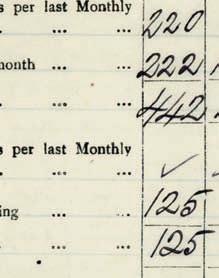 s per last Monthly 220
. ... ...
month ... ... 222
. ... ... 442
s per last Monthly ✓
. ... ...
ing ... ... 125
. ... ... 125